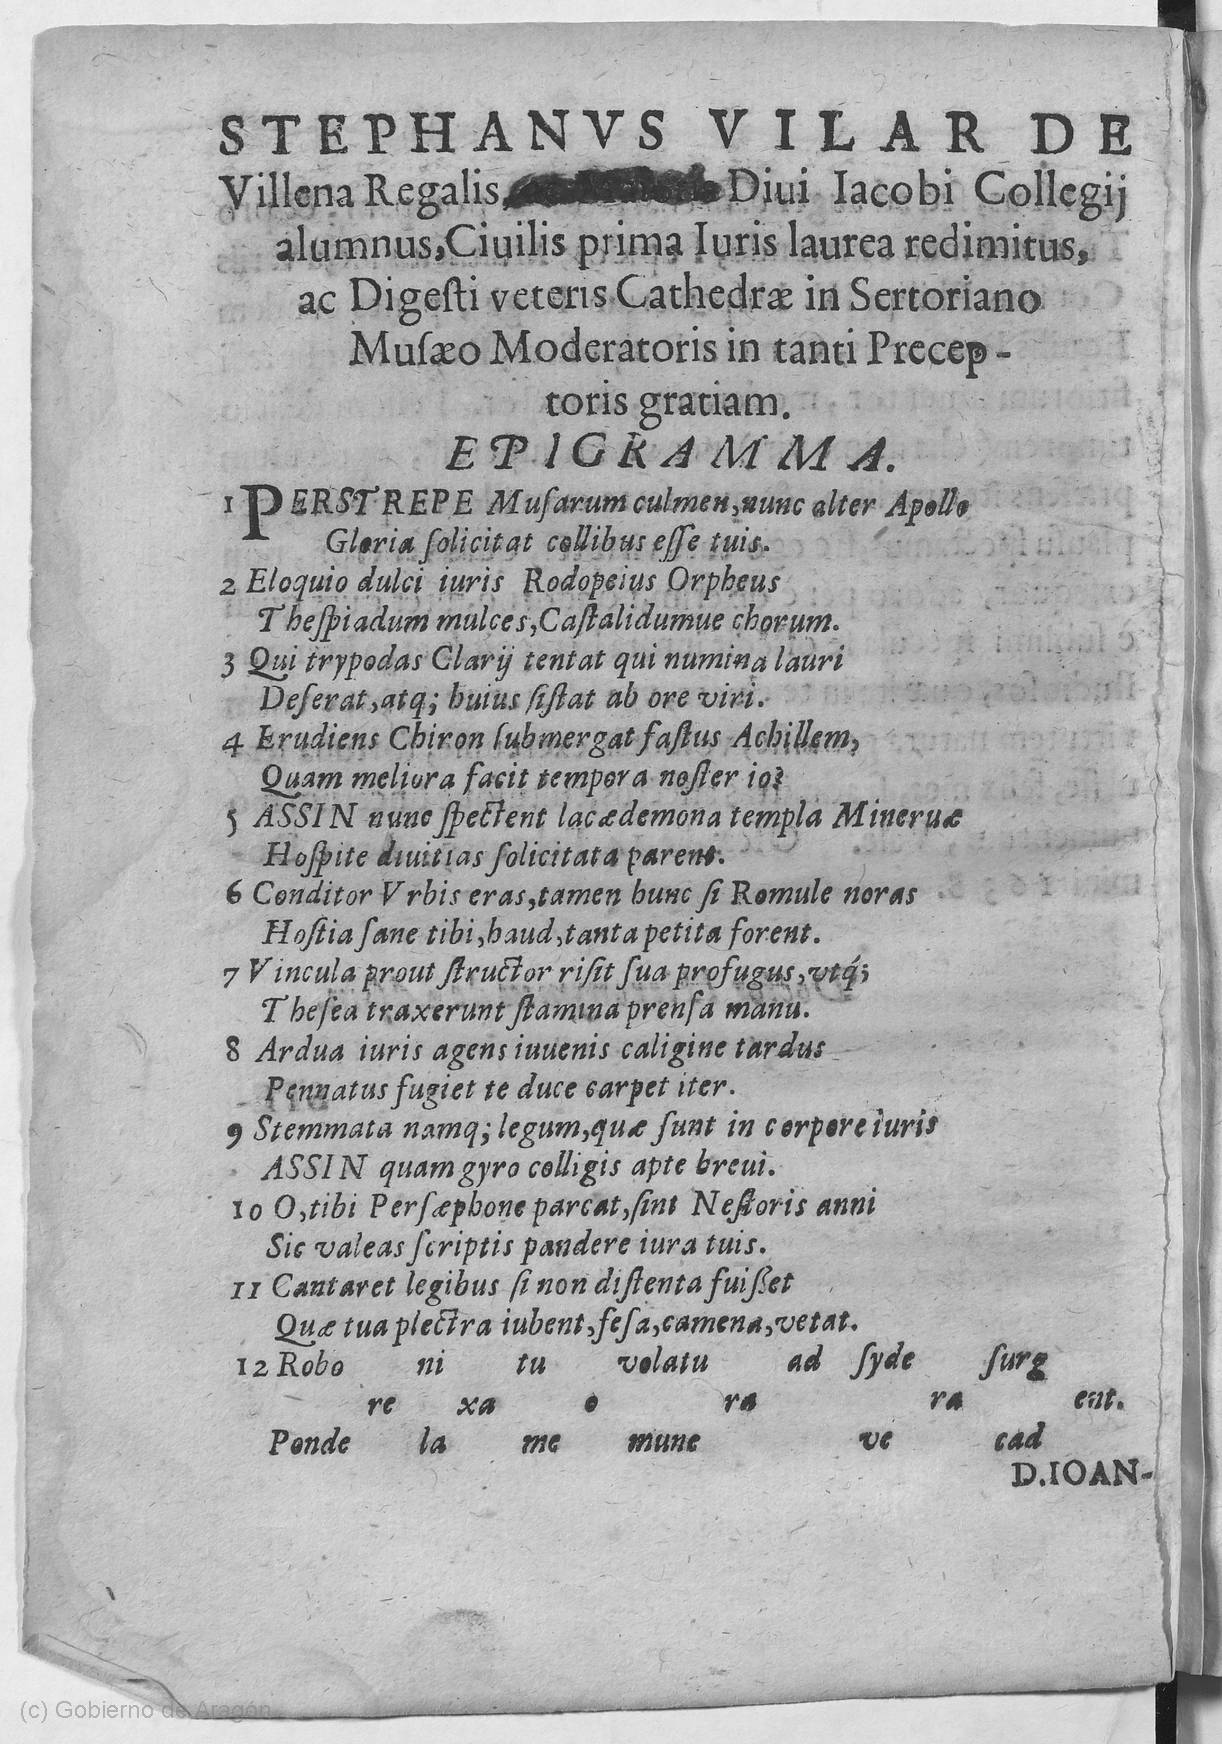 STEPHANVS VILAR DE
Villena Regalis, Diui Iacobi Collegij
alumnus, Ciuilis prima Iuris laurea redimitus,
ac Digeſti veteris Cathedræ in Sertoriano
Muſæo Moderatoris in tanti Precep-
toris gratiam.
EPIGRAMMA.
1 PERSTREPE Muſarum culmen, nunc alter Apollo
Gloria ſolicitat collibus eſſe tuis.
2 Eloquio dulci iuris Rodopeius Orpheus
Theſpiadum mulces, Caſtalidumue chorum.
3 Qui trypodas Clarij tentat qui numina lauri
Deſerat, atq; huius ſiſtat ab ore viri.
4 Erudiens Chiron ſubmergat faſtus Achillem,
Quam meliora facit tempora noſter io?
5 ASSIN nunc ſpectent lacædemona templa Mineruæ
Hoſpite diuitias ſolicitata parent.
6 Conditor Vrbis eras, tamen hunc ſi Romule noras
Hoſtia ſane tibi, haud, tanta petita forent.
7 Vincula prout ſtructor riſit ſua profugus, vtq́;
Theſea traxerunt ſtamina prenſa manu.
8 Ardua iuris agens iuuenis caligine tardus
Pennatus fugiet te duce carpet iter.
9 Stemmata namq; legum, quæ ſunt in corpore iuris
ASSIN quam gyro colligis apte breui.
10 O, tibi Perſæphone parcat, ſint Neſtoris anni
Sic valeas ſcriptis pandere iura tuis.
11 Cantaret legibus ſi non diſtenta fuiſſet
Quæ tua plectra iubent, feſa, camena, vetat.
12 Robo ni tu volatu ad ſyde ſurg
re xa o ra ra ent.
Ponde la me mune ve cad
D.IOAN-
(c) Gobierno de Aragón